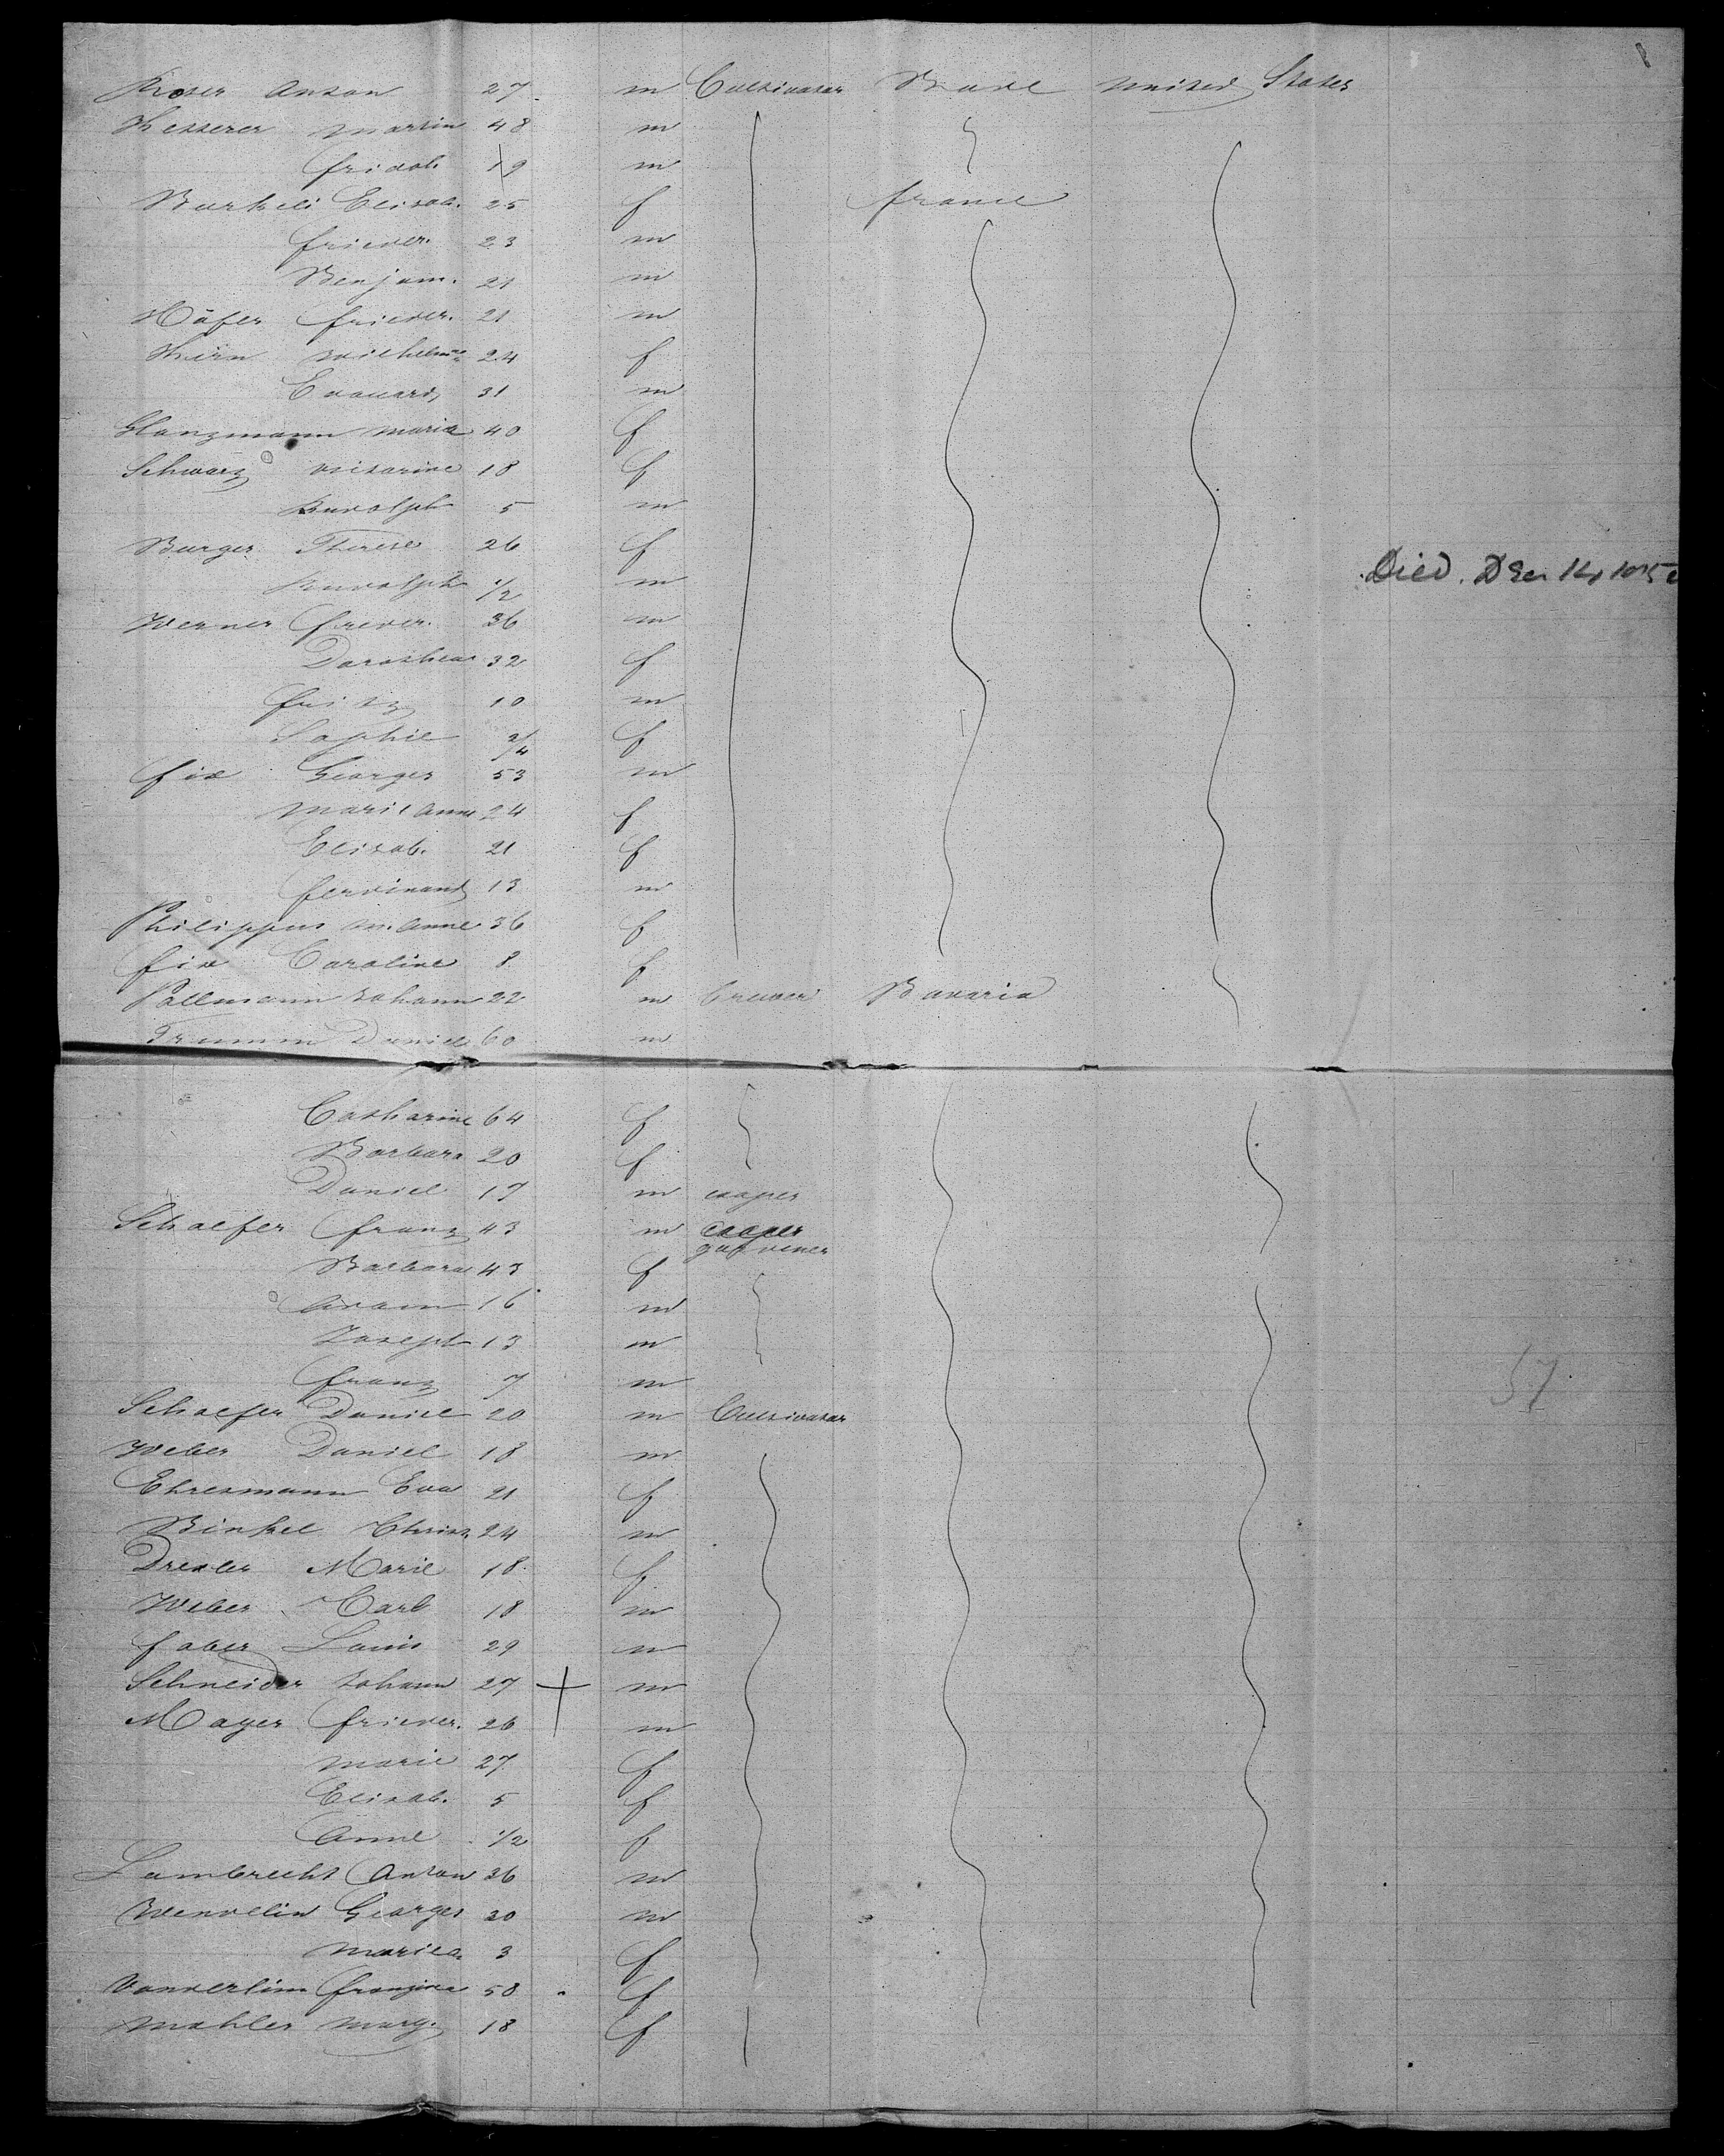 Roser Anton 27 m Cultivator Bade United States
Kesserer Martin 48 m
fridol. 19 m
Burkeli Elisab. 25 f france
frieder. 23 m
Benjam. 21 m
Höfer frieder. 21 m
Hirn Wilhelm 24 f
Edouard 31 m
Glanzmann Maria 40 f
Schwarz Victorine 18 f
Rudolph 5 m
Burger Therese 26 f
Rudolph 1/2 m Died. Dec 14
Werner freder. 36 m
Dorothea 32 f
fritz 10 m
Sophie 3/4 f
fix Georges 53 m
Marie Anne 24 f
Elisab. 21 f
ferdinand 13 m
Philippus M. Anne 36 f
fix Caroline 8 f
Pallmann Johann 22 m brewer Bavaria
Trumm Daniel 60 m
Catharine 64 f
Barbara 20 f
Daniel 17 m cooper
Schaefer franz 43 m cooper
gardener
Barbara 43 f
Adam 16 m
Joseph 13 m
franz 7 m
Schaefer Daniel 20 m Cultivator
Weber Daniel 18 m
Ehresmann Eva 21 f
Binkel Christ. 24 m
Drexler Marie 18 f
Weber Carl 18 m
faber Louis 29 m
Schneider Johann 27 + m
Mayer frieder. 26 m
Marie 27 f
Elisab. 5 f
Anne 1/2 f
Lambrecht Anton 36 m
Wendelin Georges 30 m
Maria 3 f
Vonderlinn franziska 58 f
Mahler Marg. 18 f
57